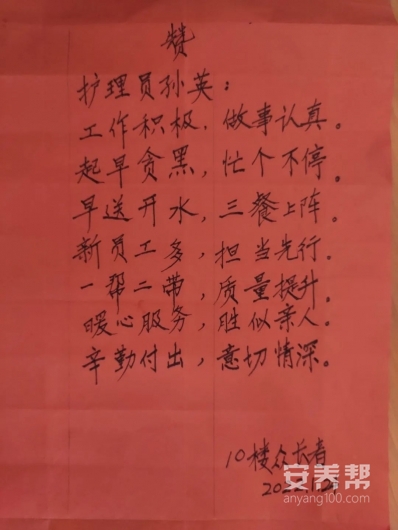 赞
护理员孙英：
工作积极，做事认真。
起早贪黑，忙个不停。
早送开水，三餐上阵。
新员工多，担当先行。
一帮二带，质量提升。
暖心服务，胜似亲人。
辛勤付出，意切情深。
10楼众长者
安养帮
anyang100.com